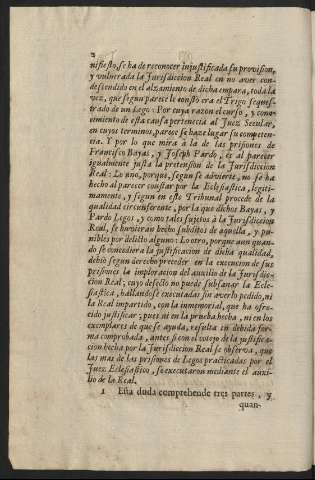 2
nifiesto, se ha de reconocer injustificada su provision,
y vulnerada la Jurisdiccion Real en no aver con-
descendido en el alzamiento de dicha empara, toda la
vez, que segun parece le consto era el Trigo seques-
trado de un Lego: Por cuya razon el curso, y cono-
cimiento de esta causa pertenecia al Juez Secular,
en cuyos terminos, parece se haze lugar su competen-
cia. Y por lo que mira à la de las prisiones de
Francisco Bayas, y Joseph Pardo, es al parecer
igualmente justa la pretension de la Jurisdiccion
Real: Lo uno, porque, segun se advierte, no se ha
hecho al parecer constar por la Eclesiastica, legiti-
mamente, y segun en este Tribunal procede de la
qualidad circunferente, por la que dichos Bayas, y
Pardo Legos, y como tales sujetos à la Jurisdiccion
Real, se huvieran hecho subditos de aquella, y pu-
nibles por delicto alguno: Lo otro, porque aun quan-
do se concediera la justificacion de dicha qualidad,
debiò segun derecho preceder en la execucion de sus
prisiones la imploracion del auxilio de la Jurisdic-
cion Real; cuyo defecto no puede subsanar la Ecle-
siastica, hallandose executadas sin averlo pedido, ni
la Real impartido, con la inmemorial, que ha ofre-
cido justificar; pues ni en la prueba hecha, ni en los
exemplares de que se ayuda, resulta en debida for-
ma comprobada, antes si con el cotejo de la justifi-
cacion hecha por la Jurisdiccion Real se observa, que
las mas de las prisiones de Legos practicadas por el
Juez Eclesiastico, se executaron mediante el auxi-
lio de la Real.
1 Esta duda comprehende tres partes, y
quan-